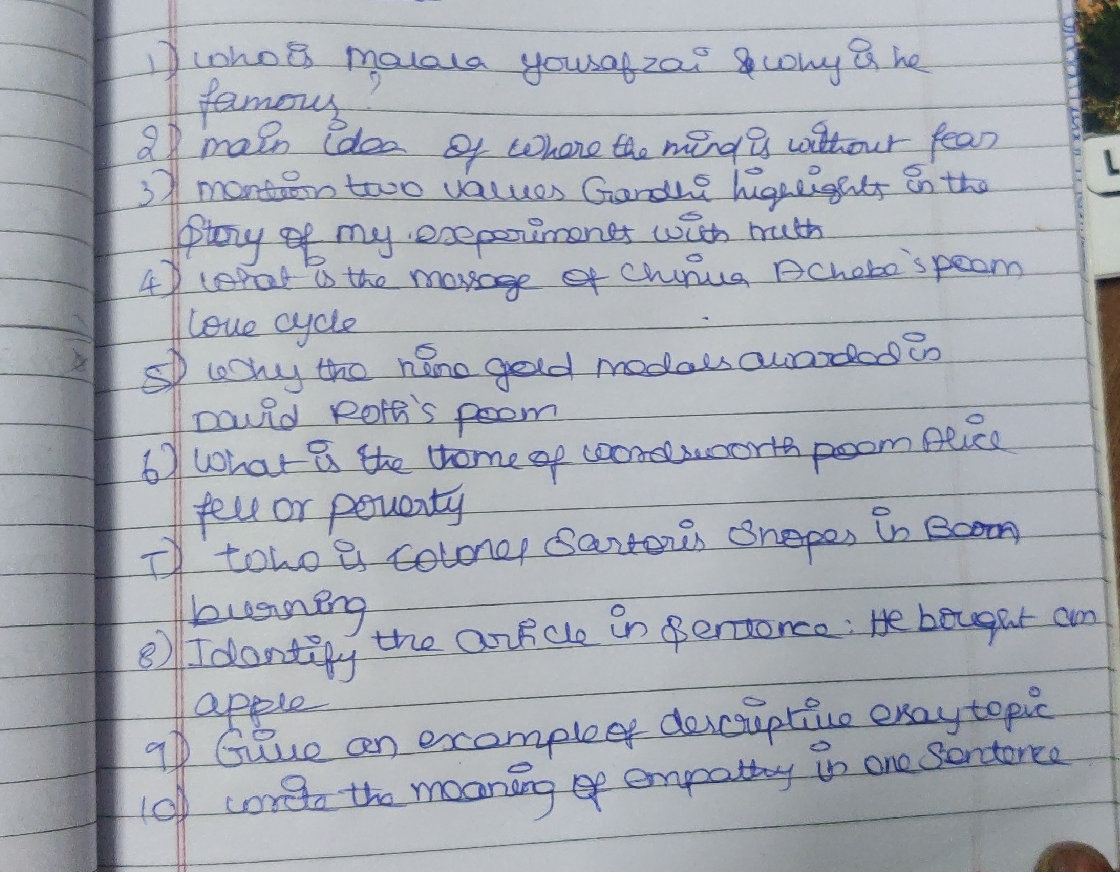 1) who is Malala yousafzai & why is he
famous?
2) main idea of where the mind is without fear
3) mention two values Gandhi highlights in the
Story of my experiments with truth
4) what is the message of Chinua Achebe's poem
Love cycle
5) why the nine gold medals awarded in
David Roth's poem
6) What is the theme of wordsworth poem Alice
fell or poverty
7) who is Colonel Sartoris Snopes in Barn
burning
8) Identify the article in Sentence: He bought an
apple
9) Give an example of descriptive essay topic
10) write the meaning of empathy in one Sentence
L